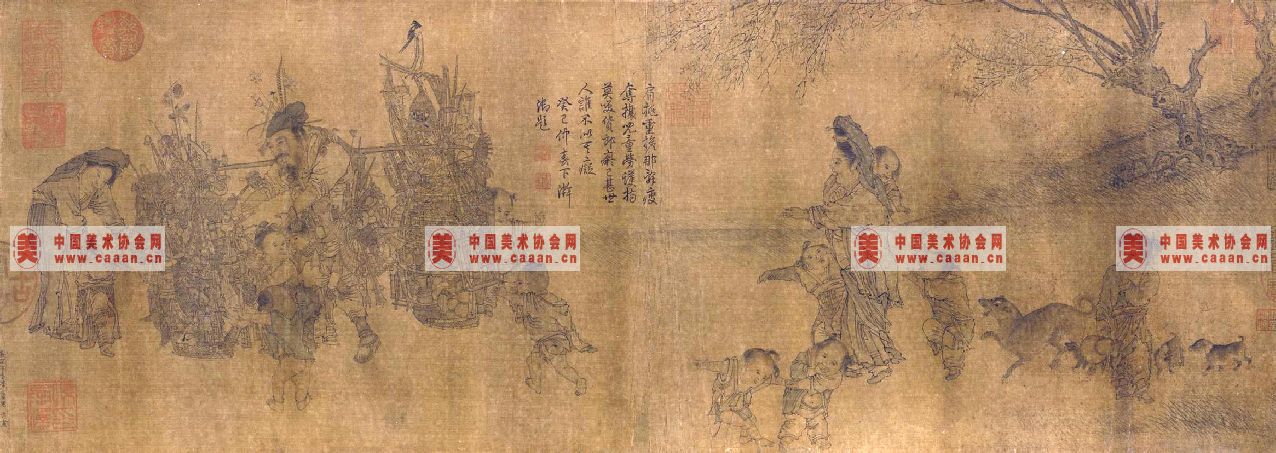 肩挑重擔那辭疲
奪攘兒童勞護持
莫笑貨郎癡已甚世
人誰不似其癡
癸巳仲春下澣
御題
美 中国美术协会网
www.caaan.cn
美 中国美术协会网
www.caaan.cn
美 中国美术协会网
www.caaan.cn
美 中国美术协会网
www.caaan.cn